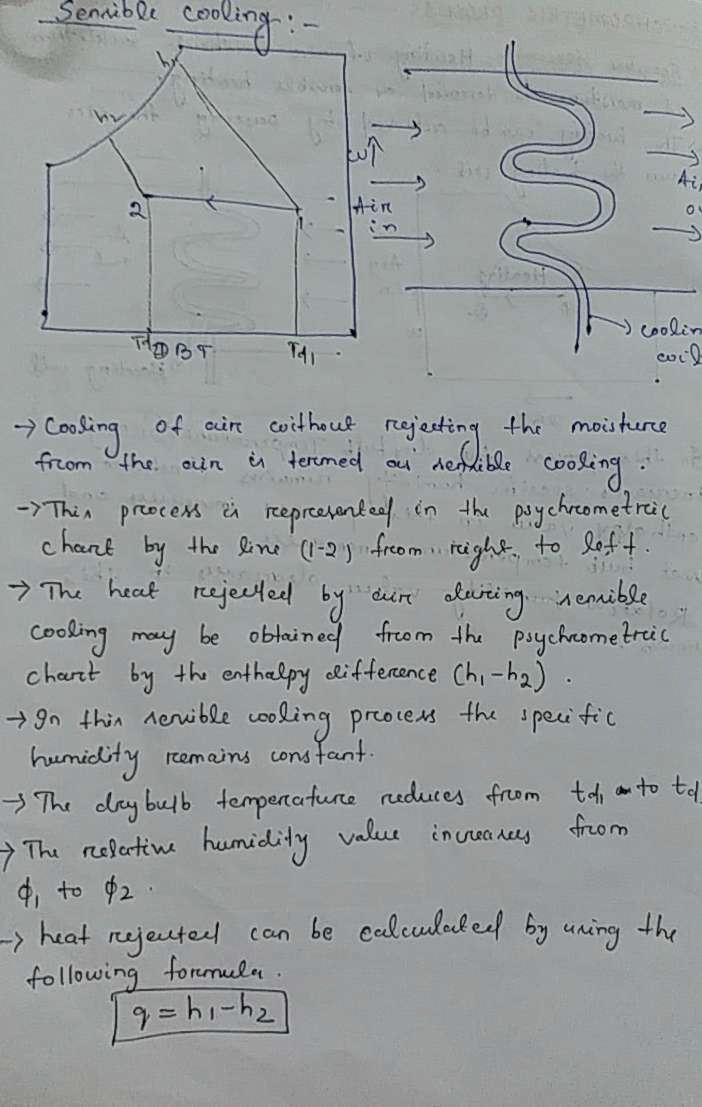 Sensible cooling :-
h1
h2
w↑
2
1
Air
in
Ai
o
Td2
DBT
Td1
coolin
coil
→ Cooling of air without rejecting the moisture
from the air is termed as sensible cooling.
→ This process is represented in the psychrometric
chart by the line (1-2) from right to left.
→ The heat rejected by air during sensible
cooling may be obtained from the psychrometric
chart by the enthalpy difference (h1-h2).
→ In this sensible cooling process the specific
humidity remains constant.
→ The dry bulb temperature reduces from td1 to td
→ The relative humidity value increases from
ϕ1 to ϕ2.
→ heat rejected can be calculated by using the
following formula.
q = h1-h2